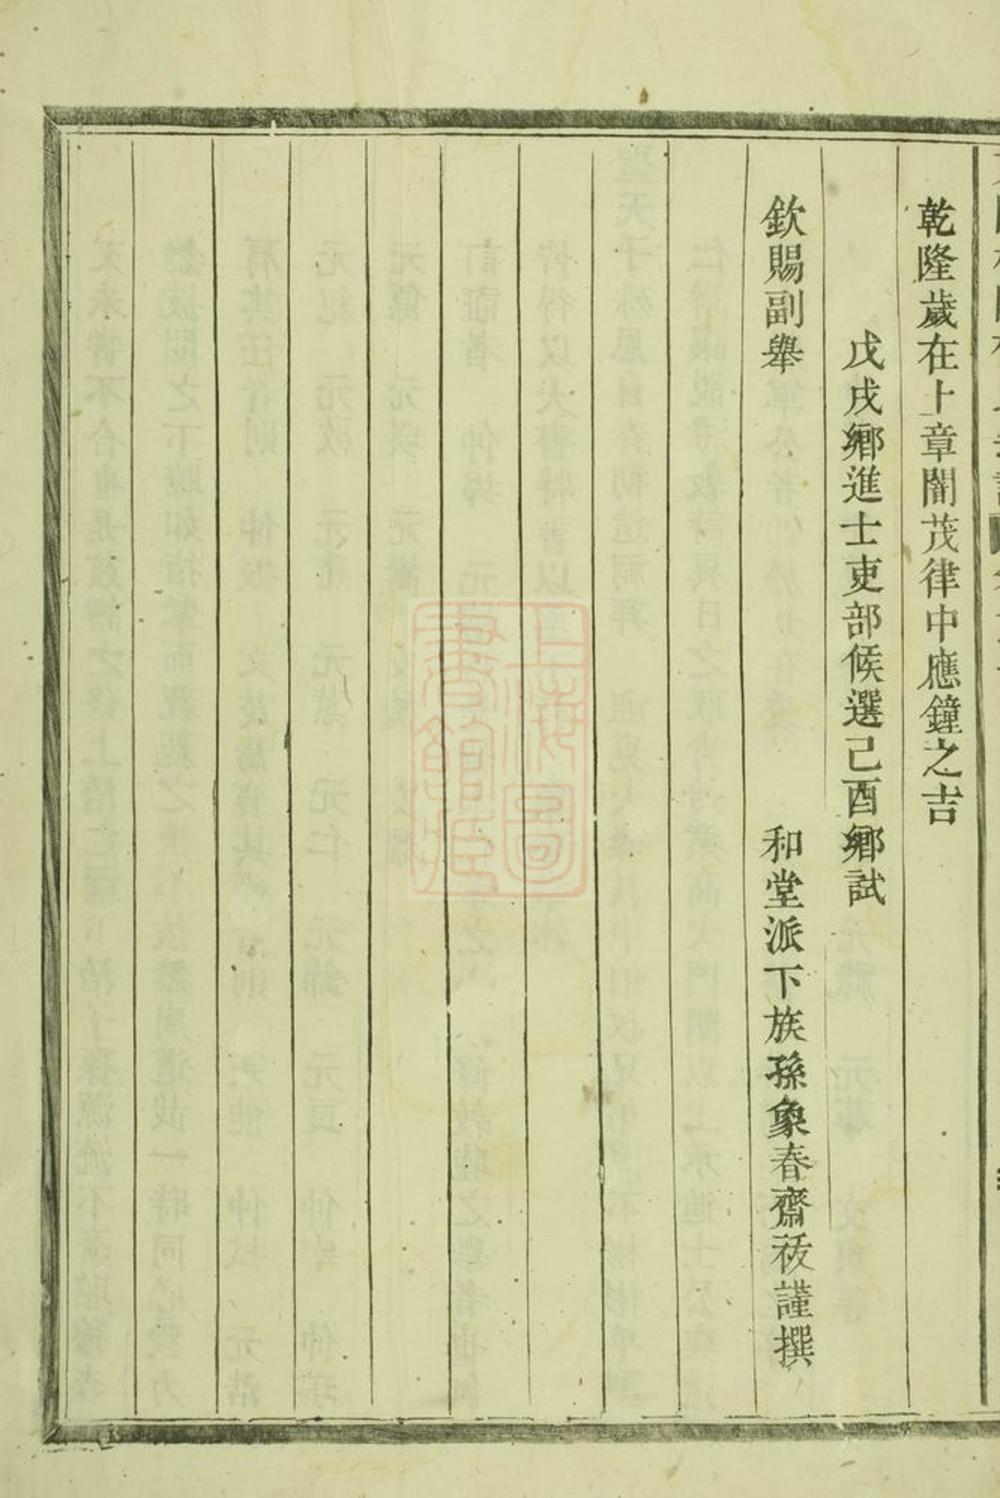 乾隆歲在上章閹茂律中應鐘之吉
戊戌鄉進士吏部候選己酉鄉試
欽賜副舉
和堂派下族孫象春齋祓謹撰
上海圖書館藏